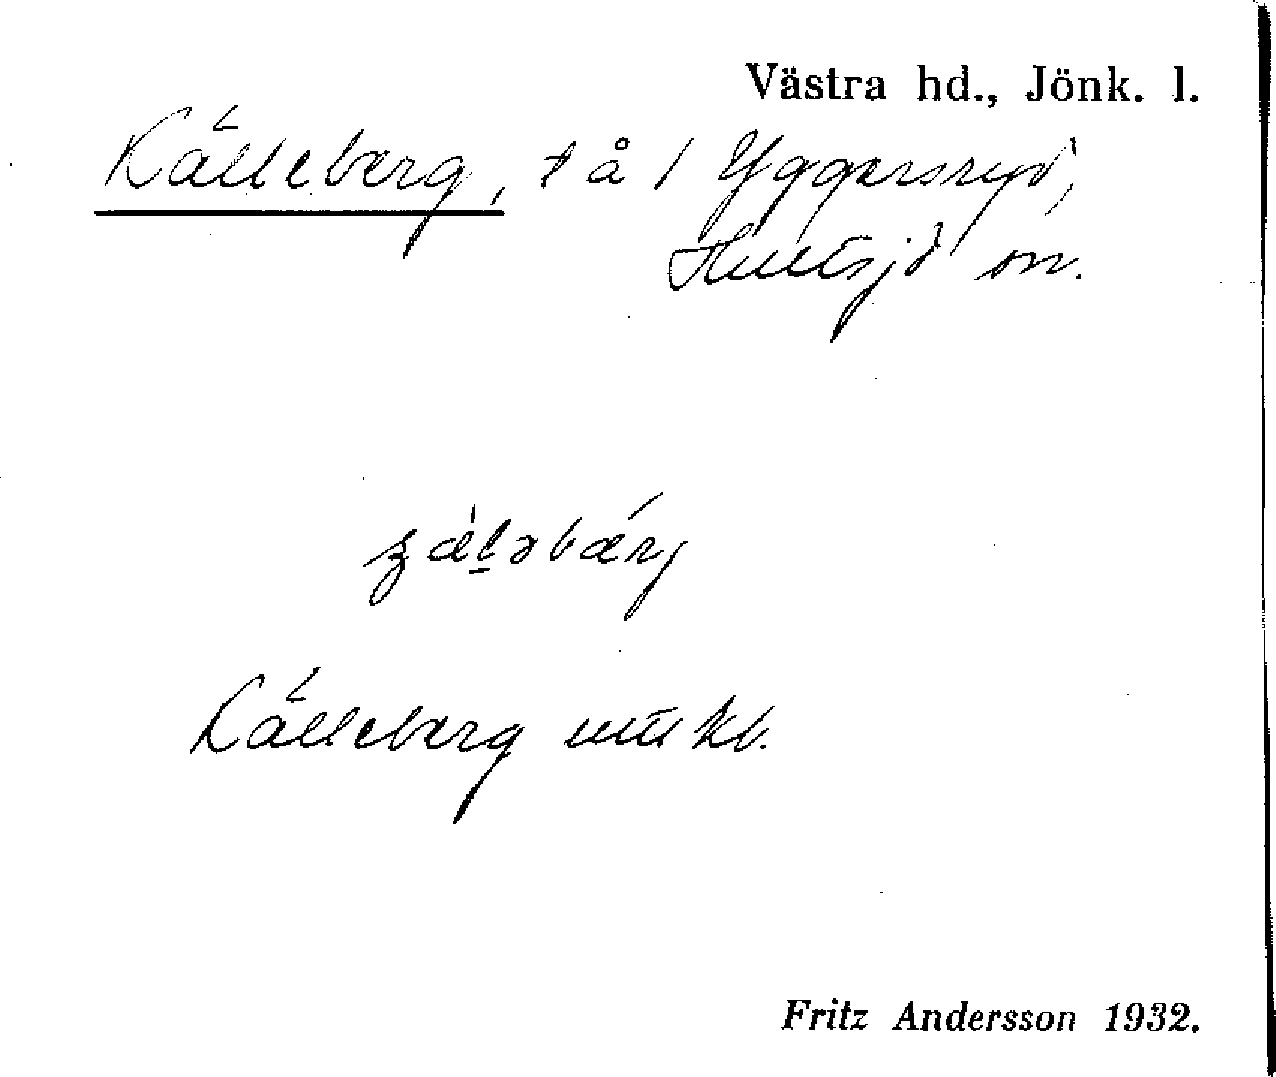 Västra hd., Jönk. l.
Källeberg, t å / Yggersryd,
Hultsjö sn.
Källeberg utt kb.
Fritz Andersson 1932.